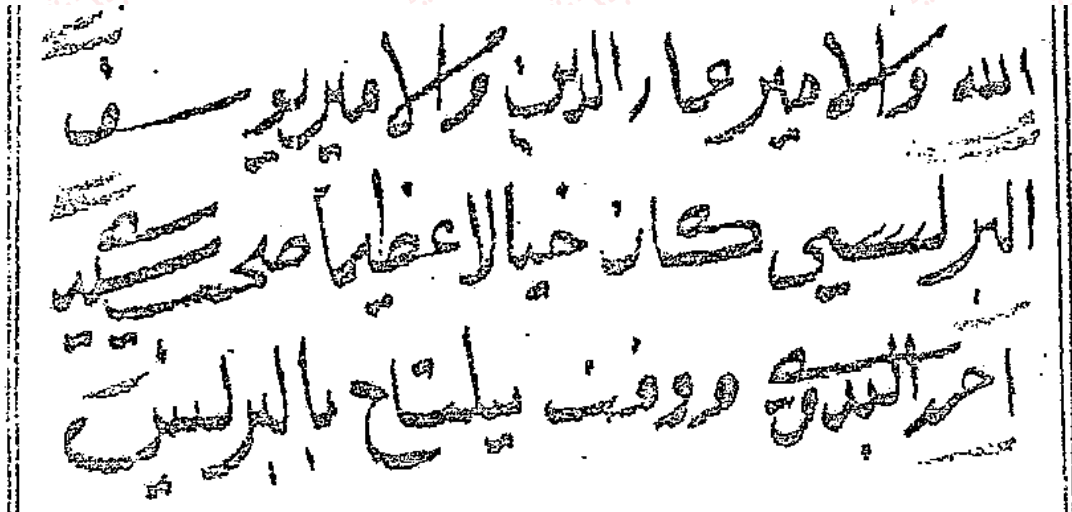 الله والامير عماد الدين والامير يوسف
البرلسي كان خيالا عظيما صحب سيدي
احمد البدوي ووقف بالبرلس